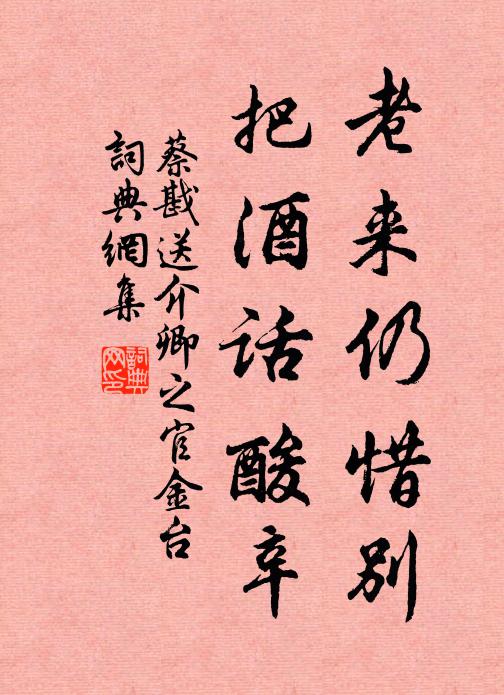 老来仍惜别
把酒话酸辛
蔡戡送介卿之官金台
詞典網集
詞典网印